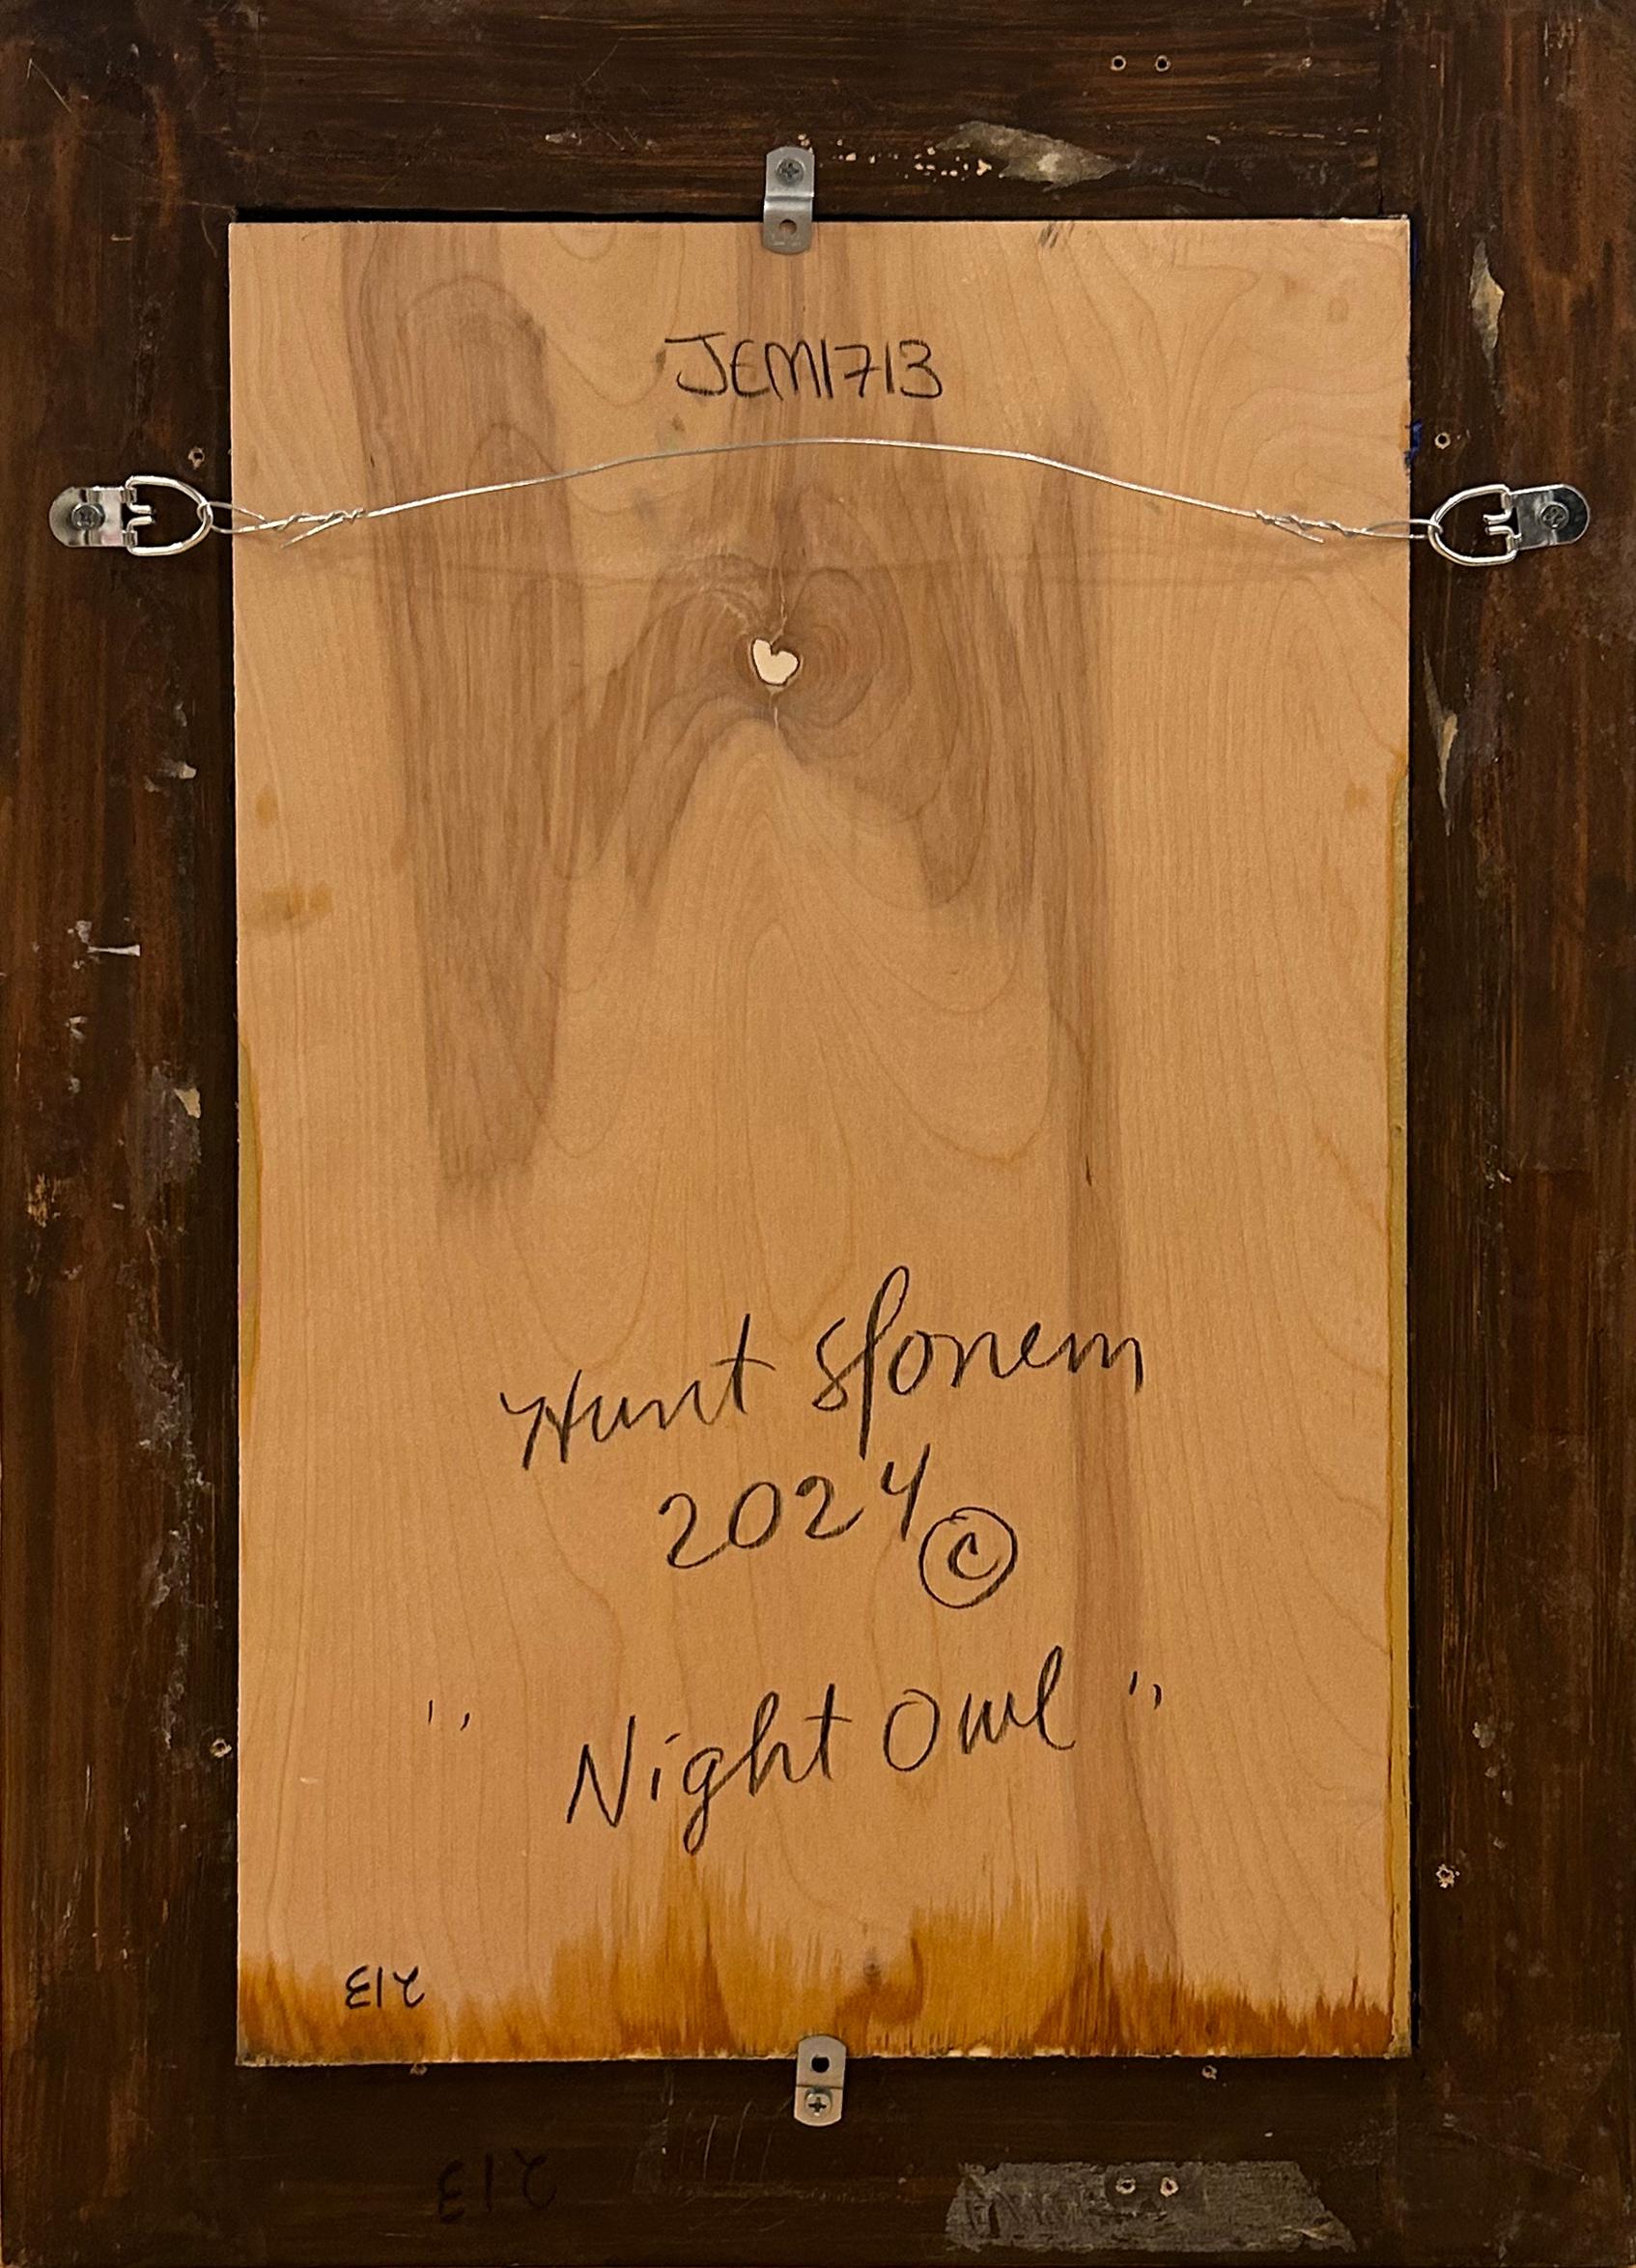 JEM1713
Hunt Slonem
2024 ©
" Night Owl "
213
213